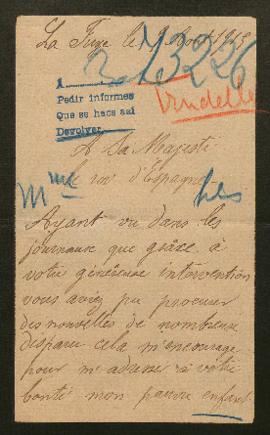 La Fuye le 9 Août 1915
13226
A
Pedir informes
Que se hace así
Devolver
A Sa Majesté
le roi d'Espagne
Mme
fils
Ayant vu dans les
journaux que grâce à
votre généreuse intervention
vous aviez pu procurer
des nouvelles de nombreux
disparu cela m'encourage
pour m'adresser à votre
bonté mon pauvre enfant